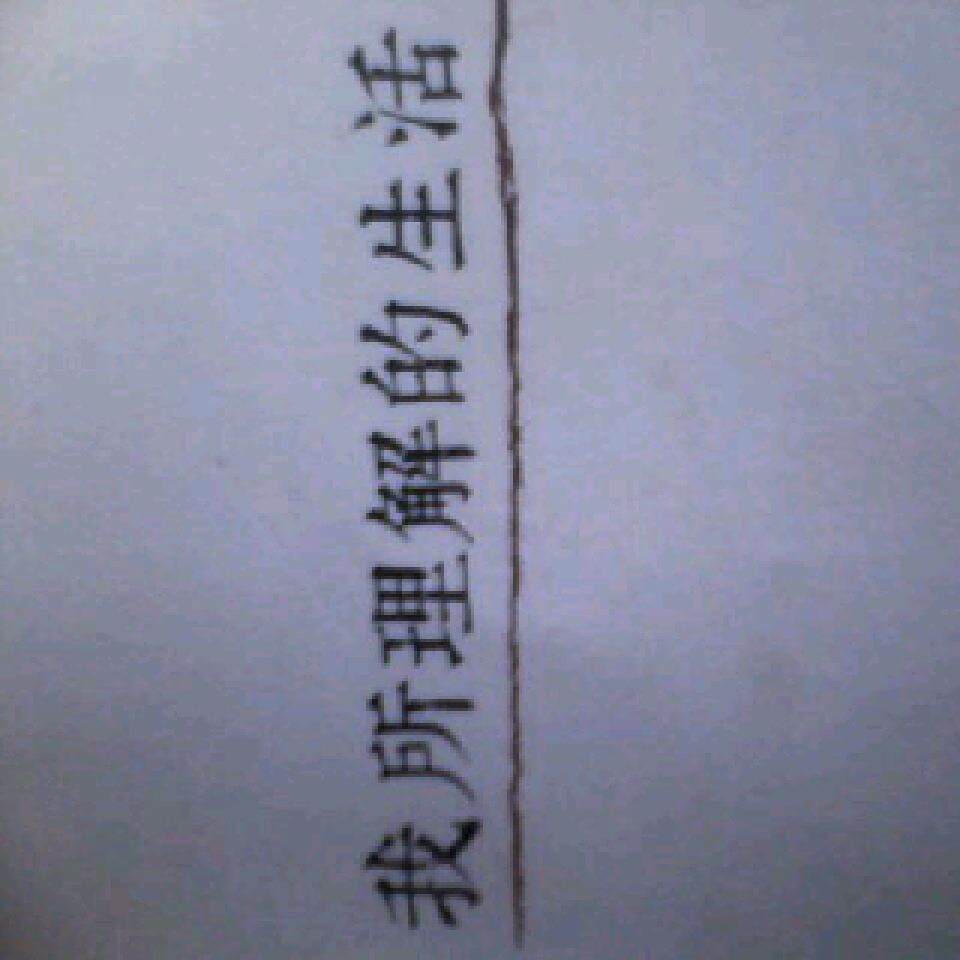 我所理解的生活